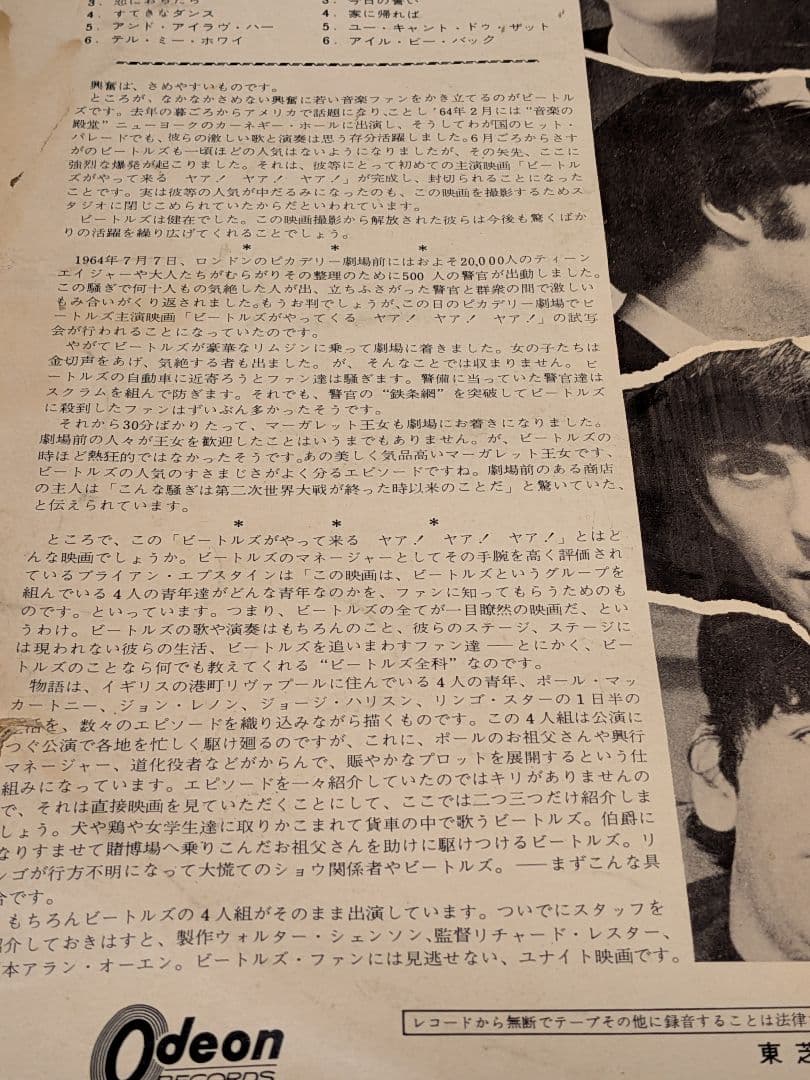 3. 恋におちたら
4. すてきなダンス
5. アンド・アイラヴ・ハー
6. テル・ミー・ホワイ
3. 今日の誓い
4. 家に帰れば
5. ユー・キャント・ドゥ・ザット
6. アイル・ビー・バック
興奮は、さめやすいものです。
ところが、なかなかさめない興奮に若い音楽ファンをかき立てるのがビートル
ズです。去年の暮ごろからアメリカで話題になり、ことし'64年2月には"音楽の
殿堂"ニューヨークのカーネギー・ホールに出演し、そうしてわが国のヒット・
パレードでも、彼らの激しい歌と演奏は思う存分活躍しました。6月ごろからさす
がのビートルズも一頃ほどの人気はないようになりましたが、その矢先、ここに
強烈な爆発が起こりました。それは、彼等にとって初めての主演映画「ビートル
ズがやって来る ヤア! ヤア! ヤア!」が完成し、封切られることになった
ことです。実は彼等の人気が中だるみになったのも、この映画を撮影するためス
タジオに閉じこめられていたからだといわれています。
ビートルズは健在でした。この映画撮影から解放された彼らは今後も驚くばか
りの活躍を繰り広げてくれることでしょう。
* * *
1964年7月7日、ロンドンのピカデリー劇場前にはおよそ20,000人のティーン
エイジャーや大人たちがむらがりその整理のために500人の警官が出動しました。
この騒ぎで何十人もの気絶した人が出、立ちふさがった警官と群衆の間で激しい
もみ合いがくり返されました。もうお判でしょうが、この日のピカデリー劇場でビ
ートルズ主演映画「ビートルズがやってくる ヤア! ヤア! ヤア!」の試写
会が行われることになっていたのです。
やがてビートルズが豪華なリムジンに乗って劇場に着きました。女の子たちは
金切声をあげ、気絶する者も出ました。が、そんなことでは収まりません。ビ
ートルズの自動車に近寄ろうとファン達は騒ぎます。警備に当っていた警官達は
スクラムを組んで防ぎます。それでも、警官の"鉄条網"を突破してビートルズ
に殺到したファンはずいぶん多かったそうです。
それから30分ばかりたって、マーガレット王女も劇場にお着きになりました。
劇場前の人々が王女を歓迎したことはいうまでもありません。が、ビートルズの
時ほど熱狂的ではなかったそうです。あの美しく気品高いマーガレット王女です、
ビートルズの人気のすさまじさがよく分るエピソードですね。劇場前のある商店
の主人は「こんな騒ぎは第二次世界大戦が終った時以来のことだ」と驚いていた、
と伝えられています。
* * *
ところで、この「ビートルズがやって来る ヤア! ヤア! ヤア!」とはど
んな映画でしょうか。ビートルズのマネージャーとしてその手腕を高く評価され
ているブライアン・エプスタインは「この映画は、ビートルズというグループを
組んでいる4人の青年達がどんな青年なのかを、ファンに知ってもらうためのも
のです。といっています。つまり、ビートルズの全てが一目瞭然の映画だ、とい
うわけ。ビートルズの歌や演奏はもちろんのこと、彼らのステージ、ステージに
は現われない彼らの生活、ビートルズを追いまわすファン達——とにかく、ビー
トルズのことなら何でも教えてくれる"ビートルズ全科"なのです。
物語は、イギリスの港町リヴァプールに住んでいる4人の青年、ポール・マッ
カートニー、ジョン・レノン、ジョージ・ハリスン、リンゴ・スターの1日半の
生活を、数々のエピソードを織り込みながら描くものです。この4人組は公演に
つぐ公演で各地を忙しく駆け廻るのですが、これに、ポールのお祖父さんや興行
マネージャー、道化役者などがからんで、賑やかなプロットを展開するという仕
組みになっています。エピソードを一々紹介していたのではキリがありませんの
で、それは直接映画を見ていただくことにして、ここでは二つ三つだけ紹介しま
しょう。犬や鶏や女学生達に取りかこまれて貨車の中で歌うビートルズ。伯爵に
なりすませて賭博場へ乗りこんだお祖父さんを助けに駆けつけるビートルズ。リ
ンゴが行方不明になって大慌てのショウ関係者やビートルズ。——まずこんな具
合です。
もちろんビートルズの4人組がそのまま出演しています。ついでにスタッフを
紹介しておきはすと、製作ウォルター・シェンソン、監督リチャード・レスター、
本アラン・オーエン。ビートルズ・ファンには見逃せない、ユナイト映画です。
Odeon
RECORDS
レコードから無断でテープその他に録音することは法律
東芝